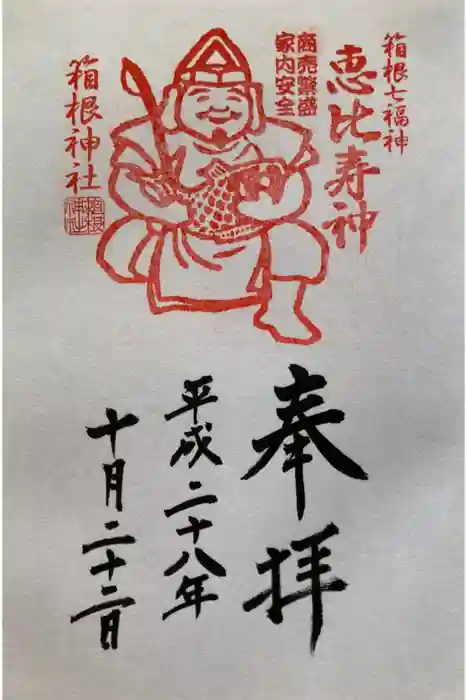 箱根七福神
恵比寿神
商売繁盛
家内安全
箱根神社
奉拝
平成二十八年
十月二十二日